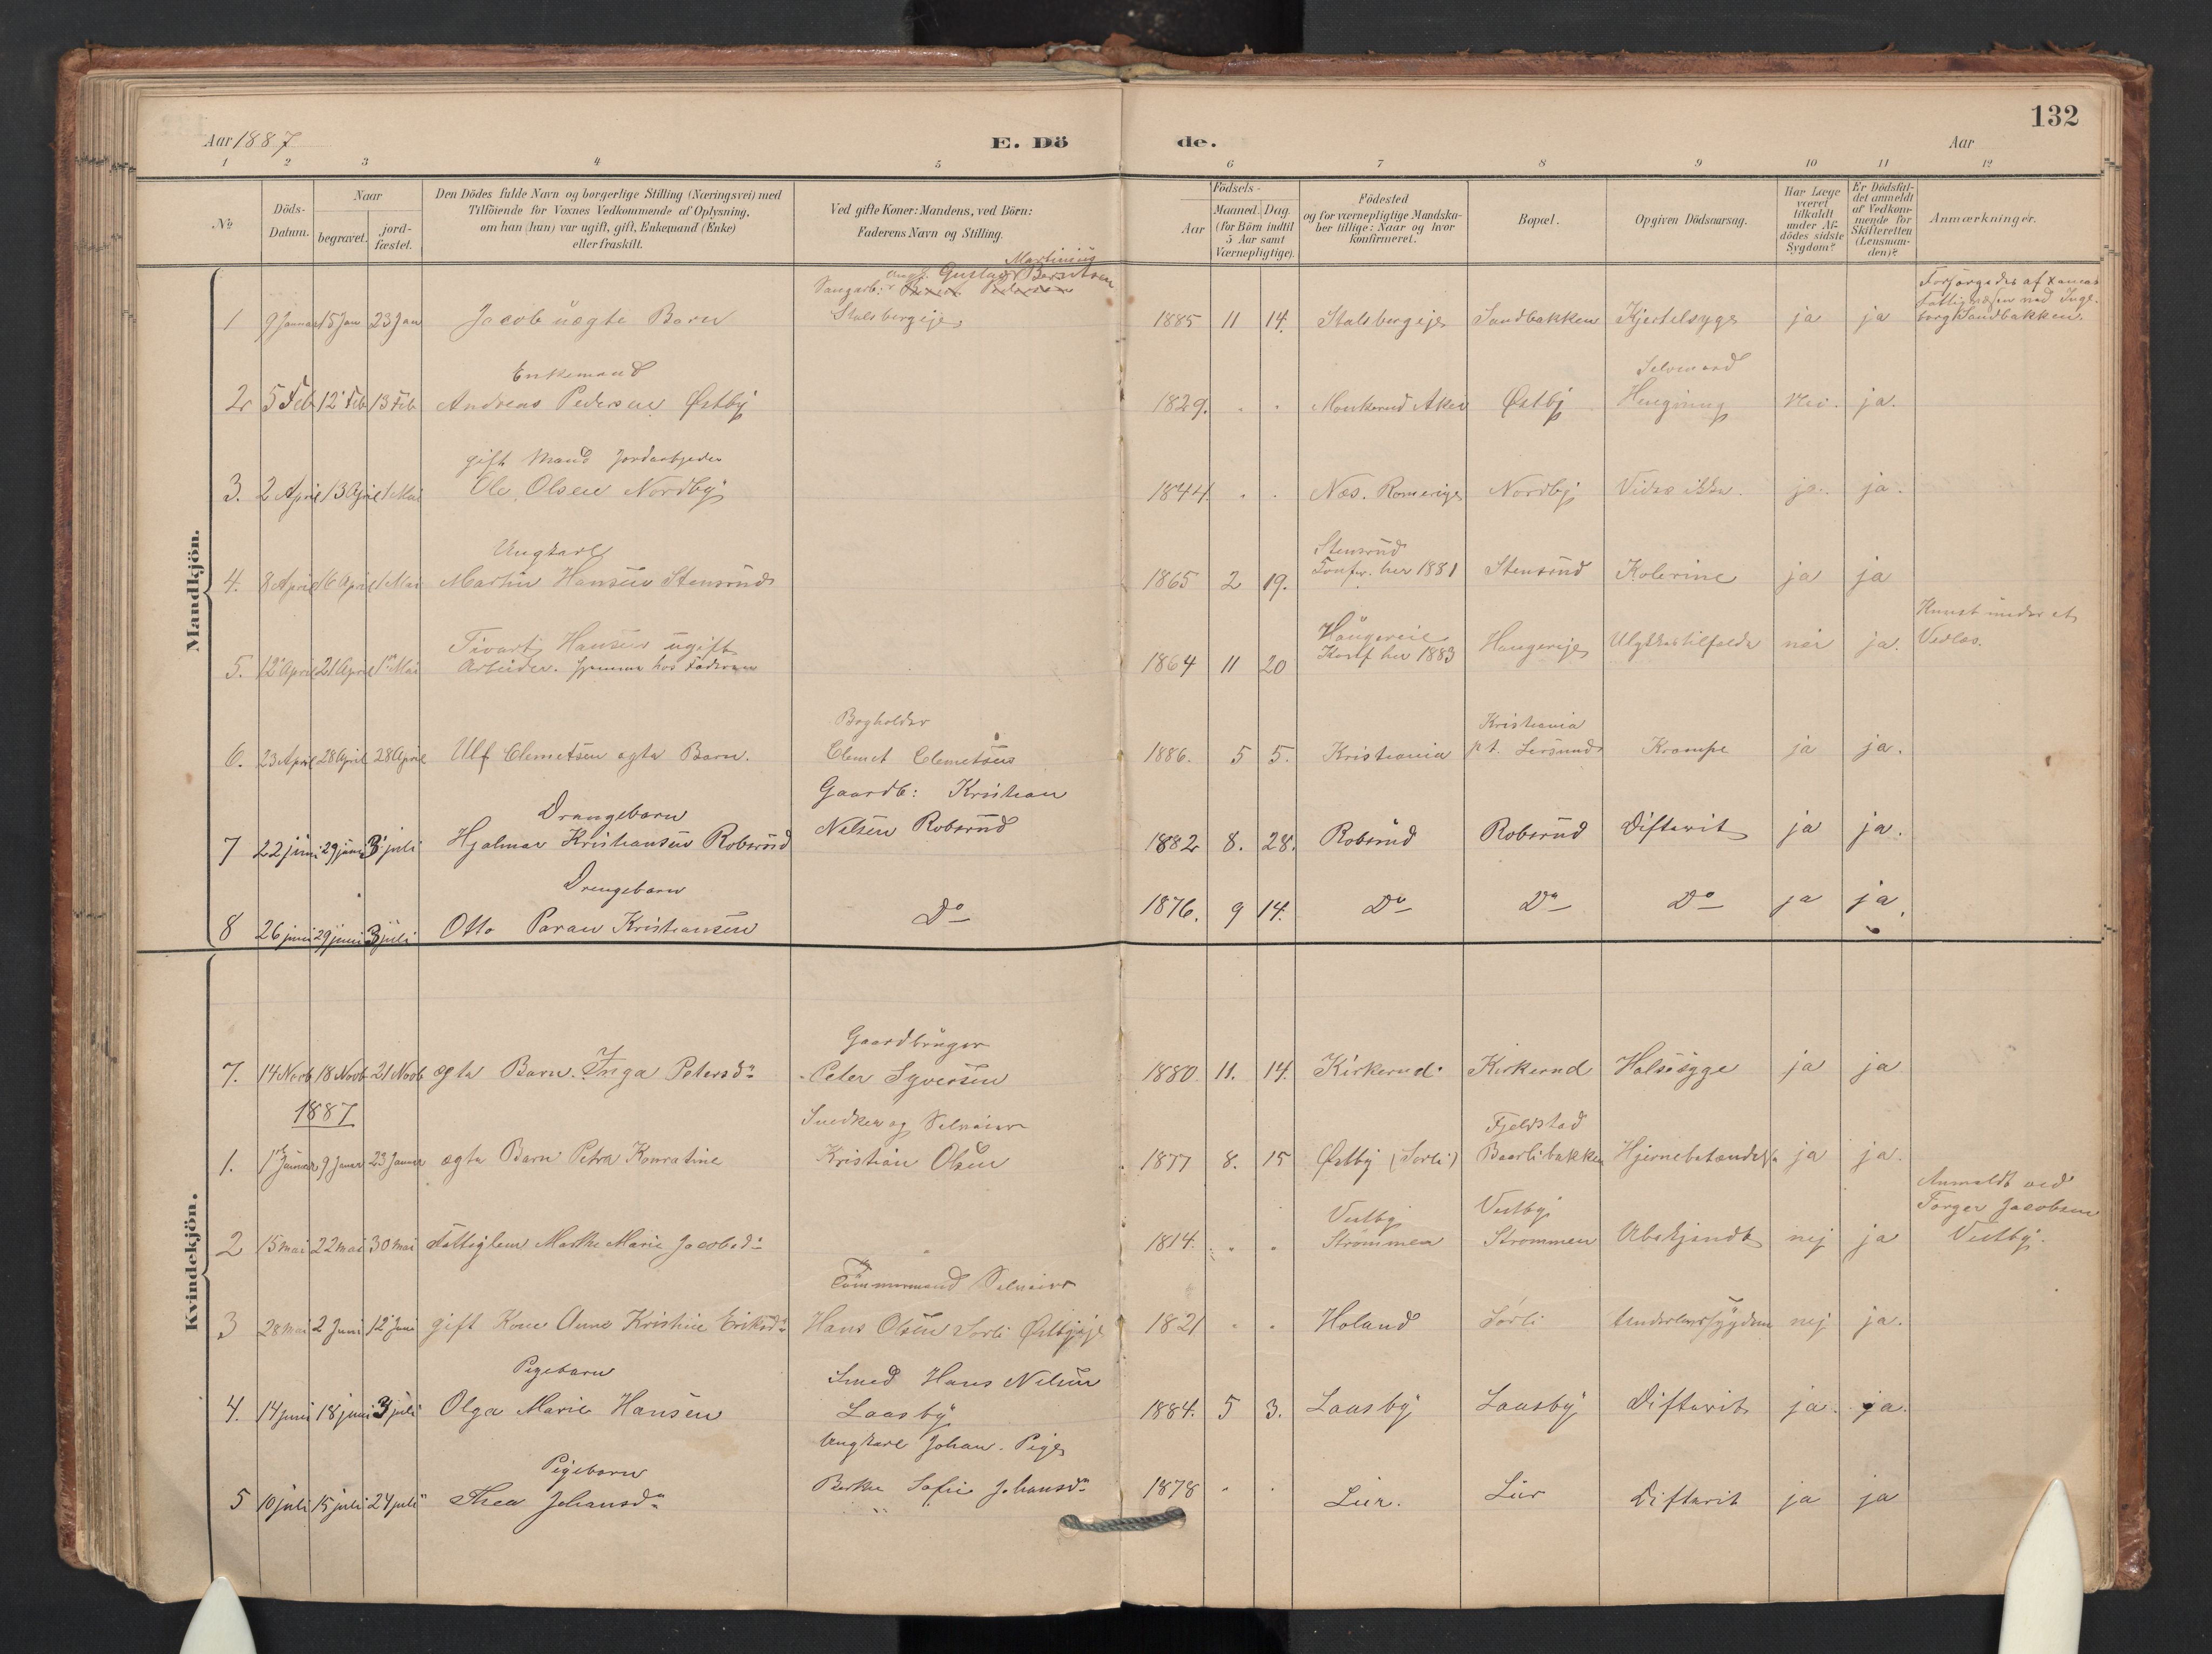 132
Aar 1887
E. Dö
de.
Aar
1 2 3 4 5 6 7 8 9 10 11 12
No
Döds-Datum.
Naar
begravet.
jord-fæstet.
Den Dödes fulde Navn og borgerlige Stilling (Næringsvei) med
Tilföiende for Voxnes Vedkommende af Oplysning,
om han (hun) var ugift, gift, Enkemand (Enke)
eller fraskilt.
Ved gifte Koner: Mandens, ved Börn:
Faderens Navn og Stilling.
Födsels-
Aar
Maaned. Dag.
(for Börn indtil
5 Aar samt
Værnepligtige).
Födested
og for værnepligtige Mandska-
ber tillige: Naar og hvor
konfirmeret.
Bopæl.
Opgiven Dödsaarsag.
Har Læge
været
tilkaldt
under Af-
dödes sidste
Sygdom?
Er Dödsfal-
det anmeldt
af Vedkom-
mende for
Skifteretten
(Lensman-
den)?
Anmærkninger.
Mandkjön.
Martinius
Gustav Berntsen
Forsørgedes af
Fattigvæsen ved Inge-
1 9 Januar 15 Jan 23 Jan Jacob uægte Barn Stalsbergeje 1885 11 14. Stalsbergeje Sandbakken Kjertelsyge ja ja borg Sandbakken.
Enkemand Selvmord
2 5 Feb 12 Feb 13 Feb Andreas Pedersen Østby 1829. Aker Østby Hengning Nei. ja.
gift Mand Jordarbeider
3. 2 April 13 April 1 Mai Ole Olsen Nordby 1844 Næs. Romerige Nordby Vides ikke. ja. ja.
Ungkarl Stensrud
4. 8 April 16 April 1 Mai Martin Hansen Stensrud 1865 2 19. Konfir. her 1881 Stensrud Kolerine ja ja
Hansen ugift Haugereie Knust under et
5. 12 April 21 April 1 Mai Arbeider. hjemme hos Faderen 1864 11 20 Konf her 1883 Haugereje Ulykkestilfælde nei ja. Vedlæs.
Bogholder Kristiania
6. 23 April 28 April 28 April Ulf Clemetsen ægte Barn. Clemet Clemetsen 1886. 5 5. Kristiania p.t. Krampe ja ja.
Drengebarn Gaardb: Kristian
7 22 juni 29 juni 3 juli Hjalmar Kristiansen Robsrud Nilsen Robsrud 1882 8. 28. Robsrud Robsrud Difterit ja ja.
Drengebarn
8 26 juni 29 juni 3 juli Otto Kristiansen Do 1876. 9 14. Do Do Do ja ja.
Kvindekjön.
Gaardbruger
7. 14 Novb 18 Novb 21 Novb ægte Barn. Inga Petersd. Peter Syversen 1880. 11. 14. Kirkerud Kirkerud Halssyge ja ja
1887
Snedker og Selveier Fjeldstad
1. 1 Januar 9 Januar 23 Januar ægte Barn Petra Konratine Kristian Olsen 1877 8. 15 Østby (Sørli) Baarlibakken Hjernebetændelse ja ja.
Vestby Vestby Anmeldt ved
Torger Jacobsen
2 15 mai 22 mai 30 mai Fattiglem Marthe Marie Jacobsd. 1814. Strømmen Strømmen Ubekjendt nej ja Vestby.
Tømmermand Selveier
3 28 mai 2 Juni 12 Juni gift Kone Anne Kristine Eriksd. Hans Olsen Sørli Østbyeje 1821 Holand Sørli Underlivssygdom nej ja.
Pigebarn Smed Hans Nilsen
4. 14 juni 18 juni 3 juli Olga Marie Hansen Laasby 1884. 5 3. Laasby Laasby Difterit ja. ja.
Pigebarn Ungkarl Johan. Pige
5 10 juli 15 juli 24 juli Thea Johansd. Sofie Johansd. 1878 Lier. Lier Difterit ja ja